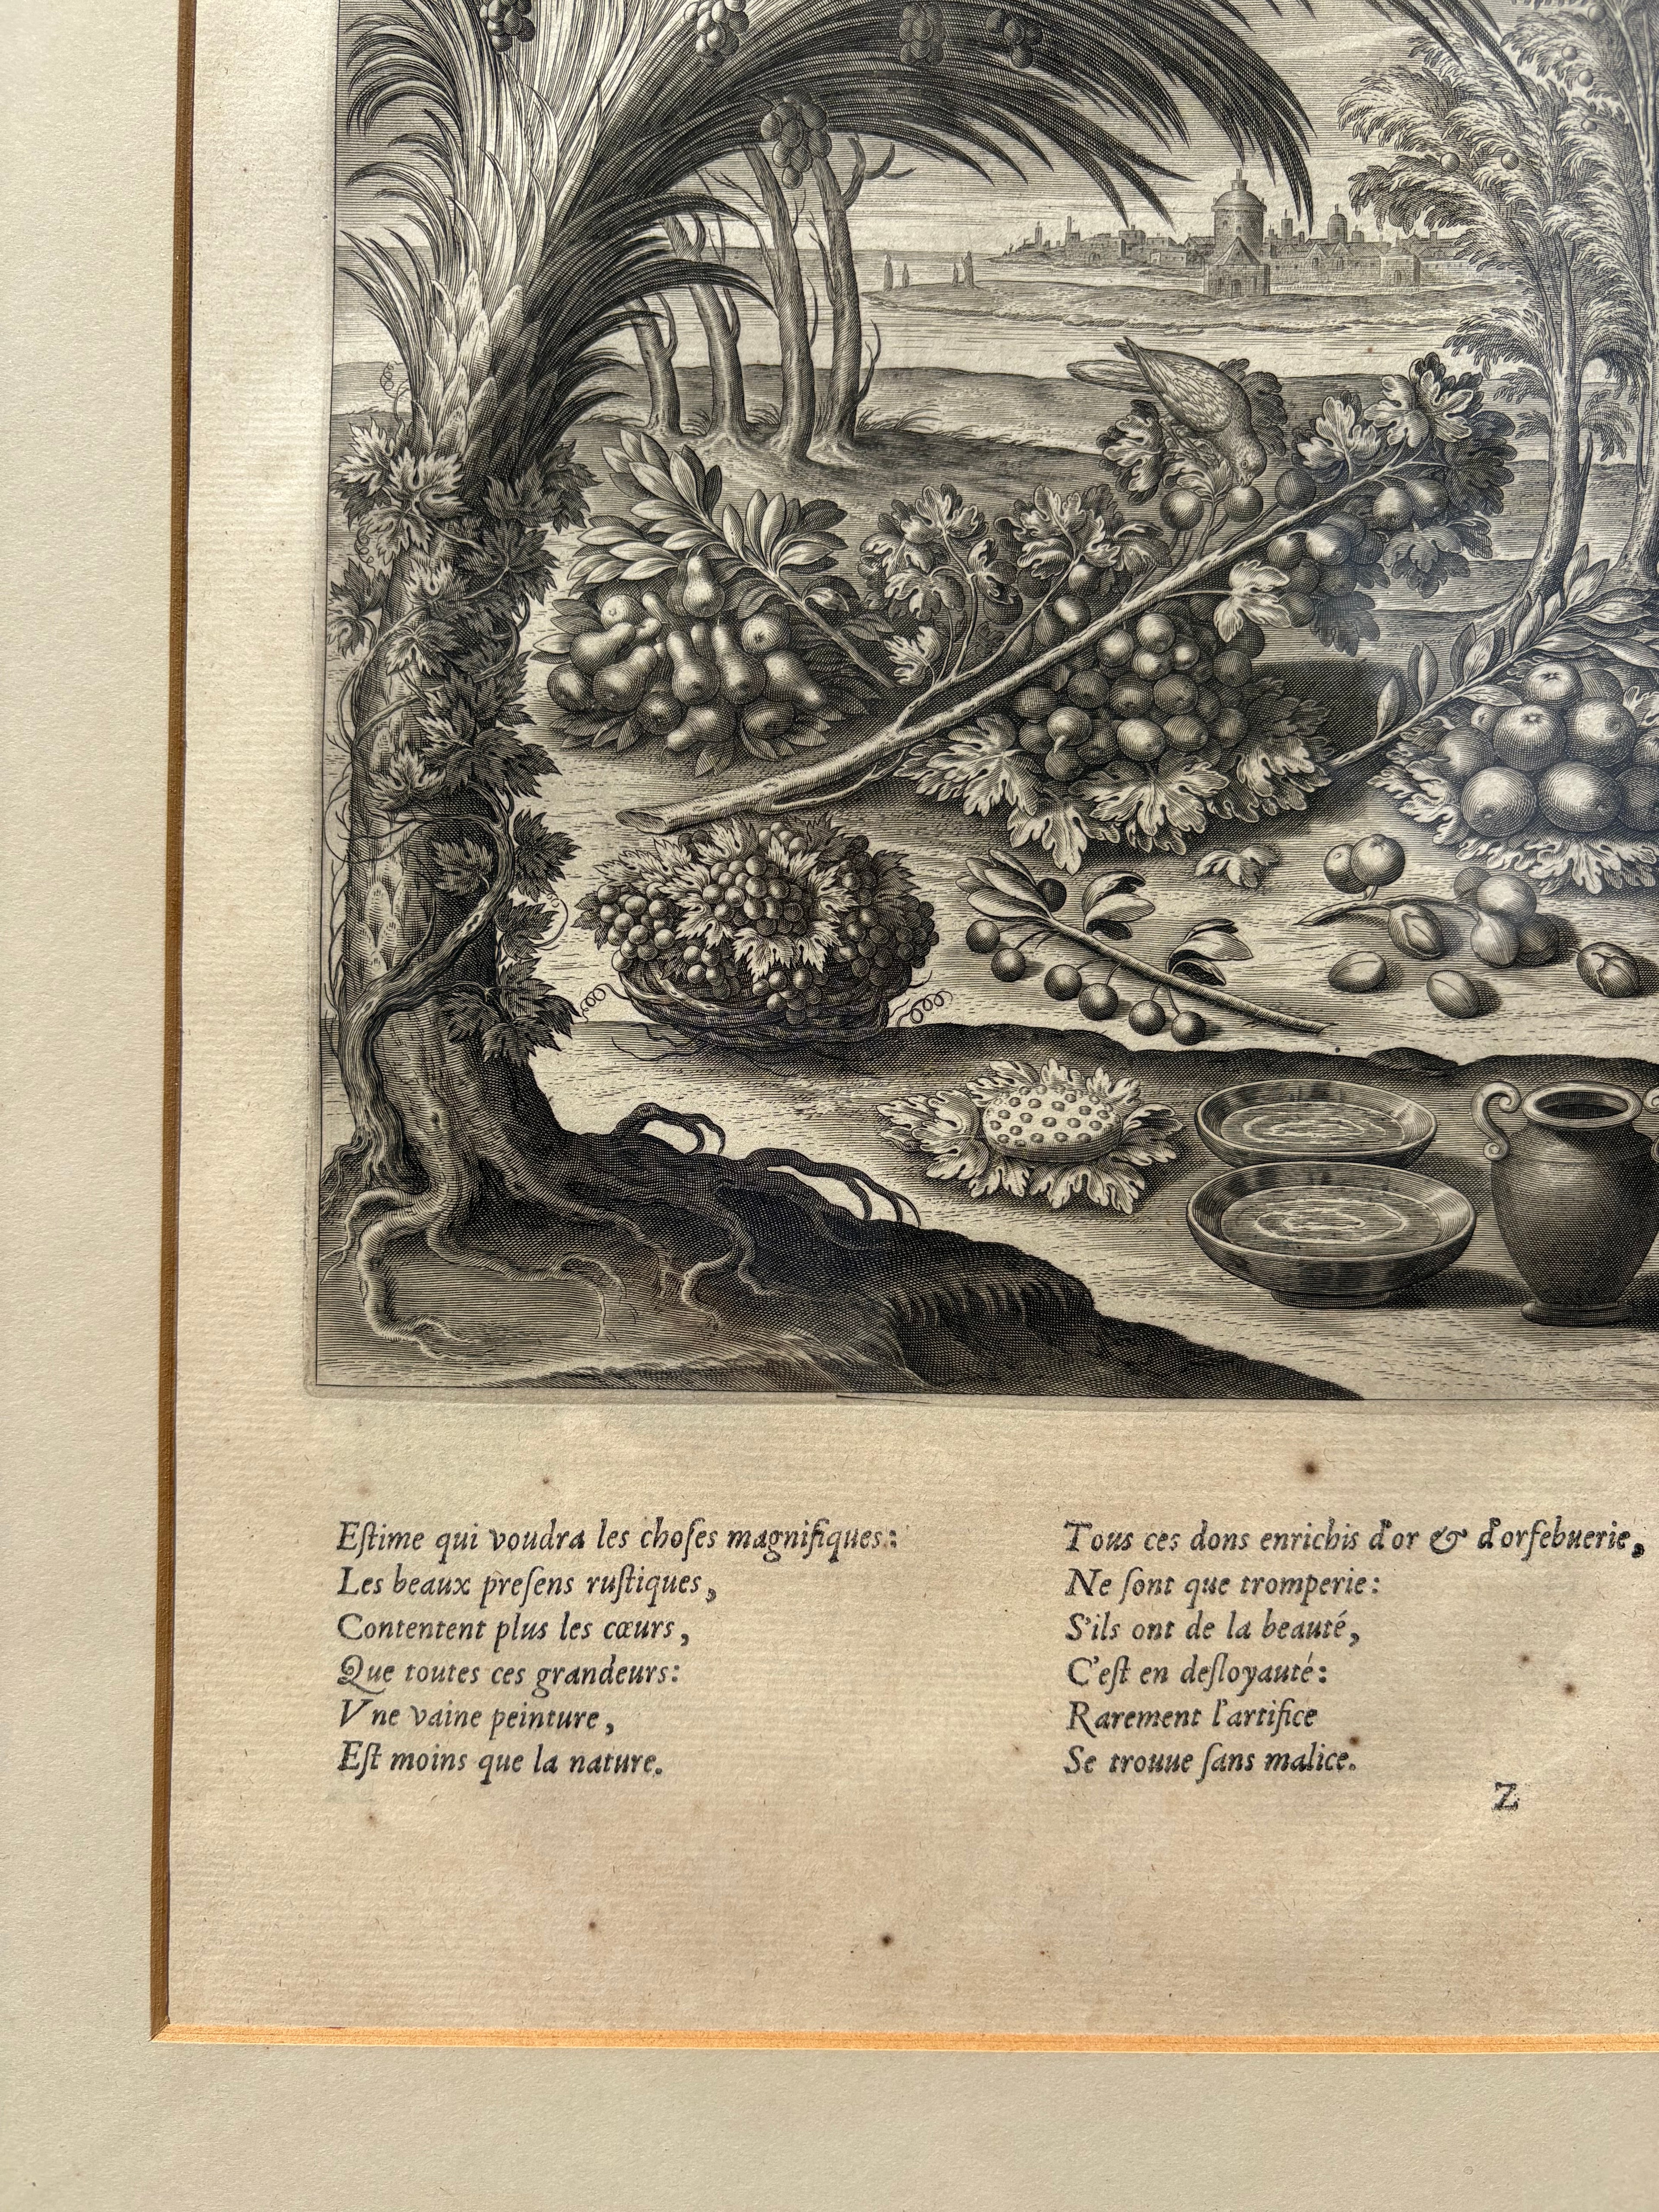 Eſtime qui voudra les choſes magnifiques:
Les beaux preſens ruſtiques,
Contentent plus les cœurs,
Que toutes ces grandeurs:
Vne vaine peinture,
Eſt moins que la nature.
Tous ces dons enrichis d'or & d'orfebuerie,
Ne ſont que tromperie:
S'ils ont de la beauté,
C'eſt en deſloyauté:
Rarement l'artifice
Se trouue ſans malice.
Z